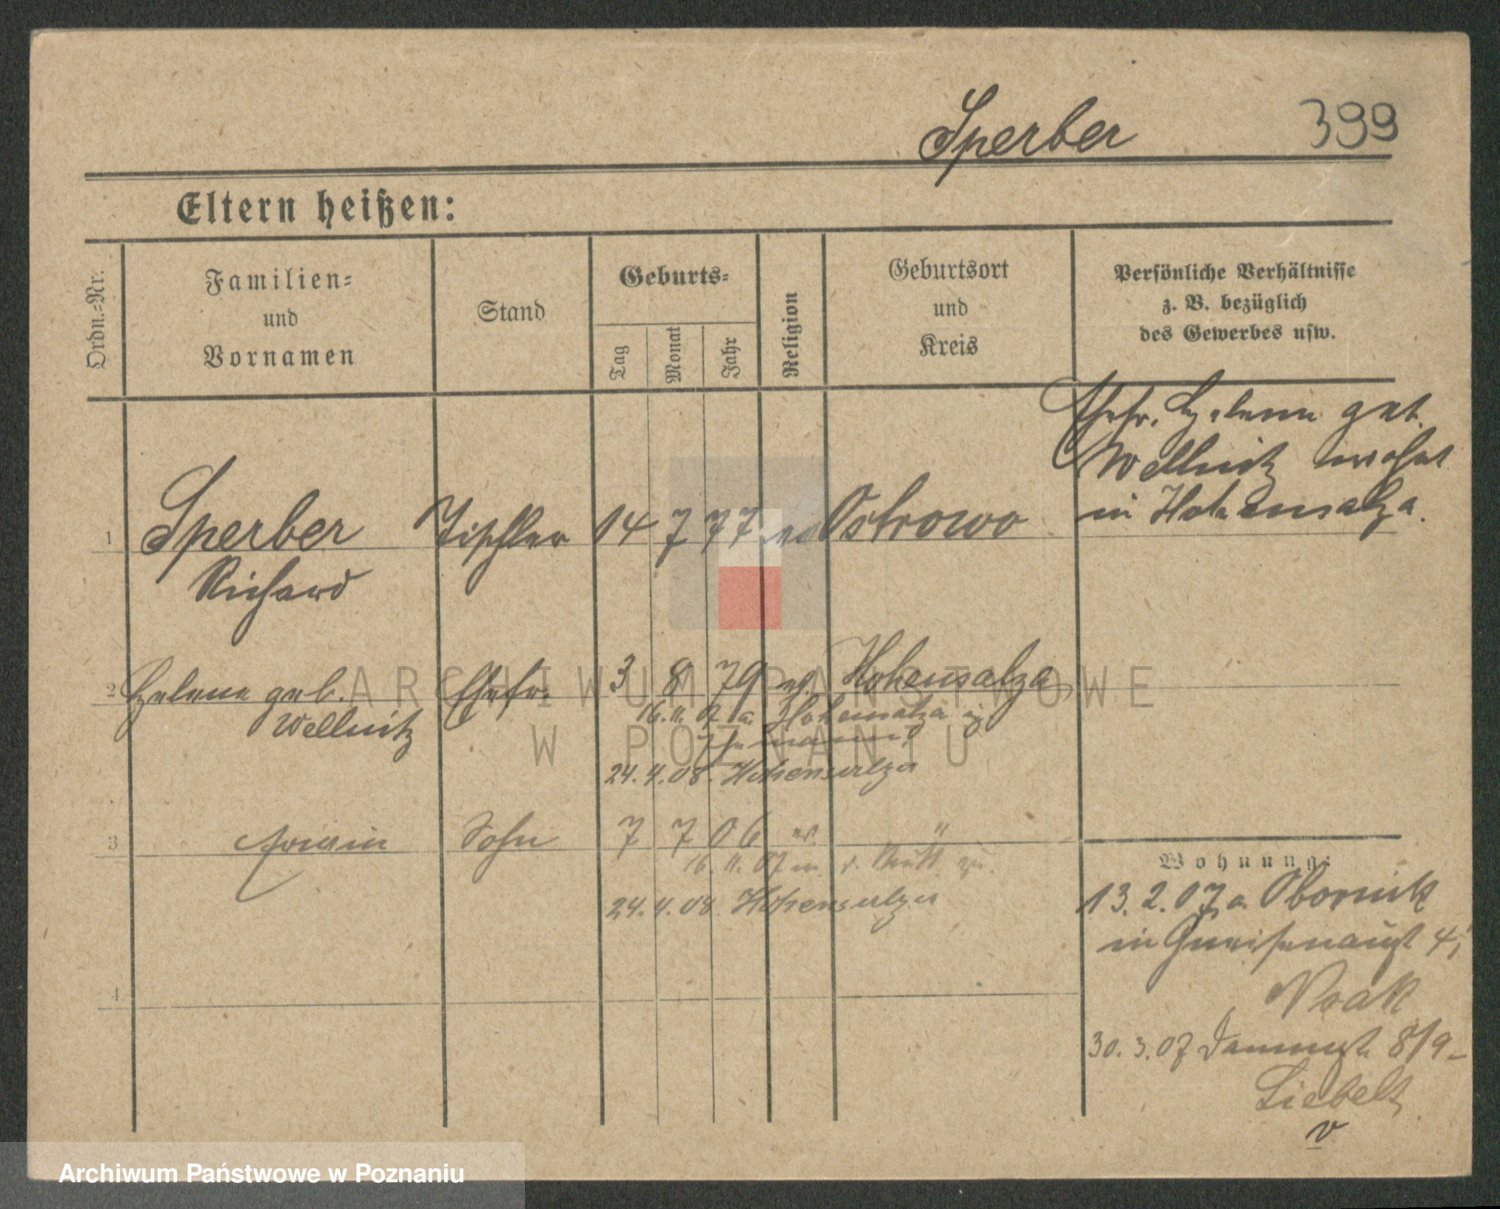 Sperber 399
Eltern heißen:
Ordn.-Nr.
Familien-
und
Vornamen
Stand
Geburts-
Tag Monat Jahr
Religion
Geburtsort
und
Kreis
Persönliche Verhältnisse
z. B. bezüglich
des Gewerbes usw.
Ehefr. Helene geb.
Wellnitz wohnt
in Hohensalza.
1 Sperber Tischler 14 7 77 ev Ostrowo
Richard
2 Helene geb. Ehefr. 3 8 79 ev. Hohensalza
Wellnitz 16. 11. 07 a. Hohensalza
24. 4. 08. Hohensalza
3 Erwin Sohn 7 7 06 ev. "
16. 11. 07 m. d. Mutt.
24. 4. 08 Hohensalza
4
Wohnung:
13. 2. 07 a. Obornik
in Gneisenaust 4
Nowak
30. 3. 07 Dammst. 8/9
Liebelt
v
ARCHIWUM PAŃSTWOWE
W POZNANIU
Archiwum Państwowe w Poznaniu